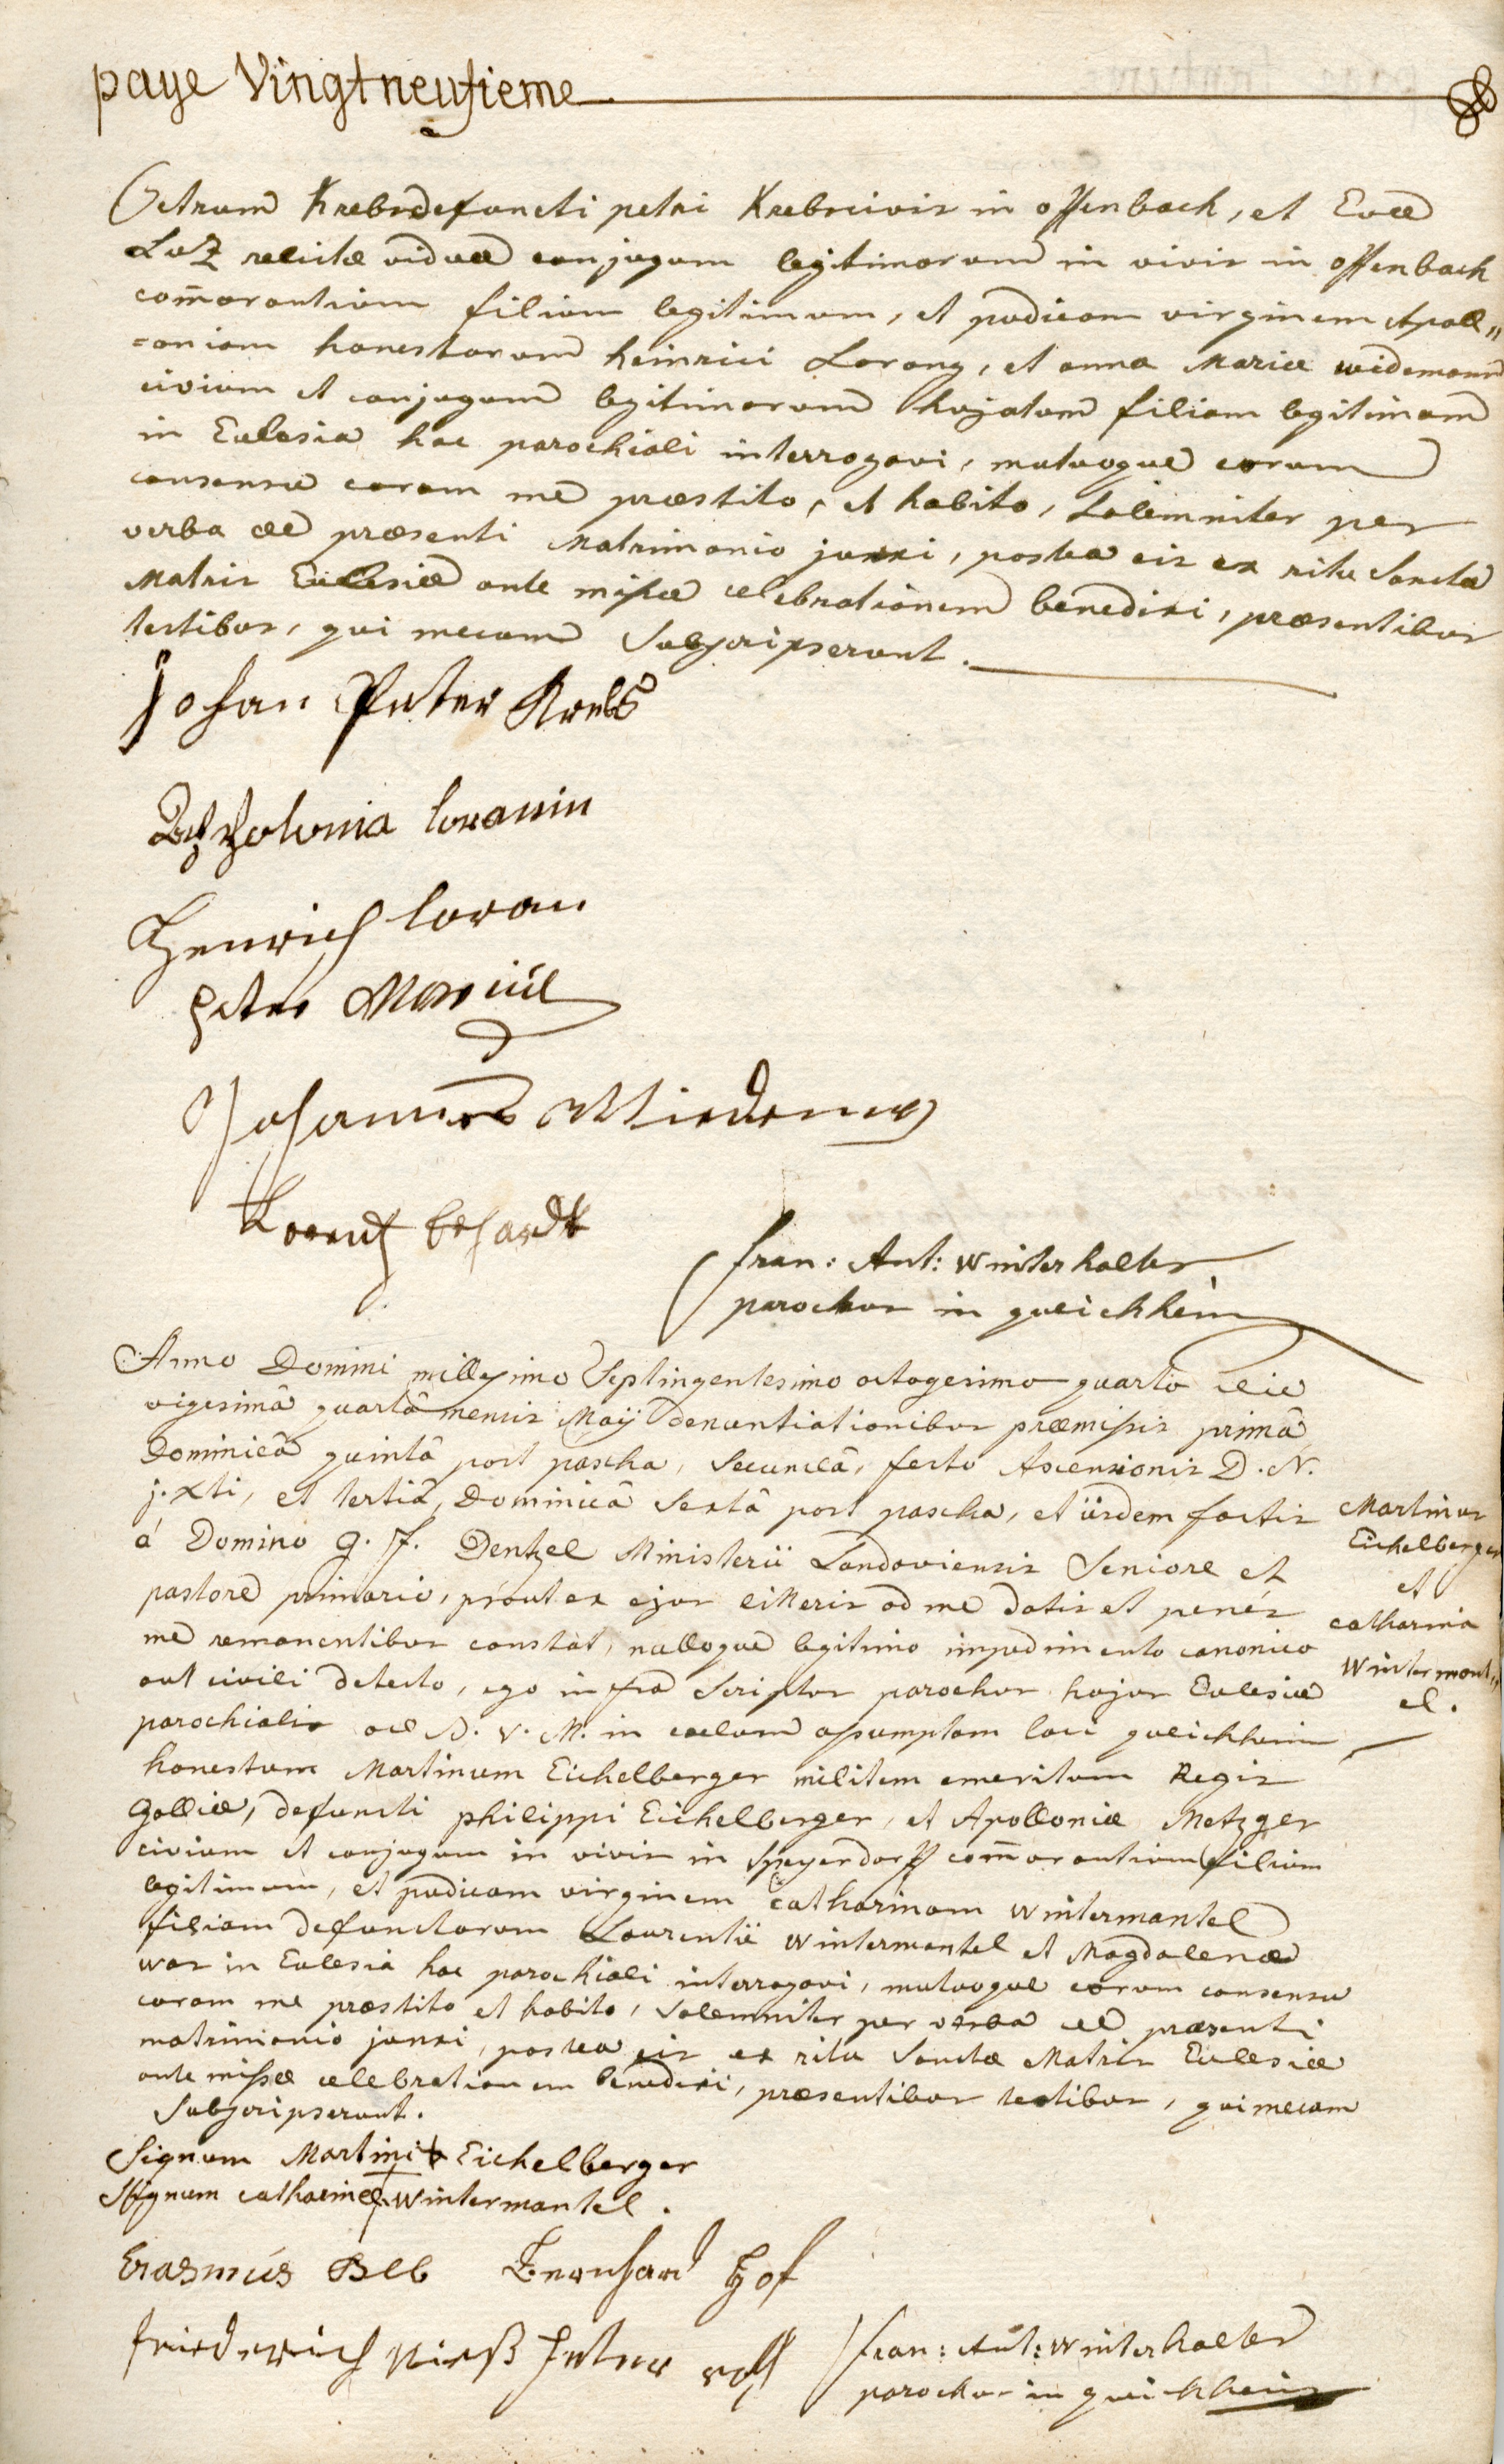 page Vingtneufieme
Petrum Krebs defuncti petri Krebs civis in offenbach, et Evæ
Luz relictæ viduæ conjugum legitimorum in vivis in offenbach
com̄orantium filium legitimum, et pudicam virginem Apoll„
=oniam honestorum heinrici Lorang, et anna Mariæ widemann
civium et conjugum legitimorum hujatum filiam legitimam
in Ecclesia hac parochiali interrogavi, mutuoque eorum
consensu coram me præstito, et habito, Solemniter per
verba de præsenti Matrimonio junxi, postea eis ex ritu Sanctæ
Matris Ecclesiæ ante missæ celebrationem benedixi, præsentibus
testibus, qui mecum Subscripserunt.
Johan Peter Krebs
Appolonia loranin
Henrich loran
Peter
Johannes
Lorentz
fran: Ant: Winterhalter
parochus in queichheim
Anno Domini millesimo Septingentesimo octogesimo quarto die
vigesimâ quartâ mensis Maij denuntiationibus præmissis primâ
Dominicâ quintâ post pascha, Secundâ, festo Ascensionis D. N.
j. xti, et tertiâ, Dominicâ Sextâ post pascha, et iisdem factis
á Domino G. F. Dentzel Ministerii Landaviensis Seniore et
pastore primario, prout ex ejus litteris ad me datis et penes
me remanentibus constat, nulloque legitimo impedimento canonico
aut civili detecto, ego infra Scriptus parochus hujus Ecclesiæ
parochialis ad B. V. M. in cœlum assumptam loci queichheim
honestum Martinum Eichelberger militem emeritum Regis
Galliæ, defuncti philippi Eichelberger, et Apolloniæ Metzger
civium et conjugum in vivis in Speyerdorff com̄orantium filium
legitimum, et pudicam virginem catharinam Wintermantel
filiam defunctorum Laurentii Wintermantel et Magdalenæ
war in Ecclesia hac parochiali interrogavi, mutuoque eorum consensu
coram me præstito et habito, Solemniter per verba de præsenti
matrimonio junxi, postea eis ex ritu Sanctæ Matris Ecclesiæ
ante missæ celebrationem benedixi, præsentibus testibus, qui mecum
Subscripserunt.
Martinus
Eichelberger
et
catharina
Wintermant„
el.
Signum Martini + Eichelberger
Signum catharinæ + Wintermantel.
Erasmus Bernhard Hof
friederich
fran: Ant: Winterhalter
parochus in queichheim